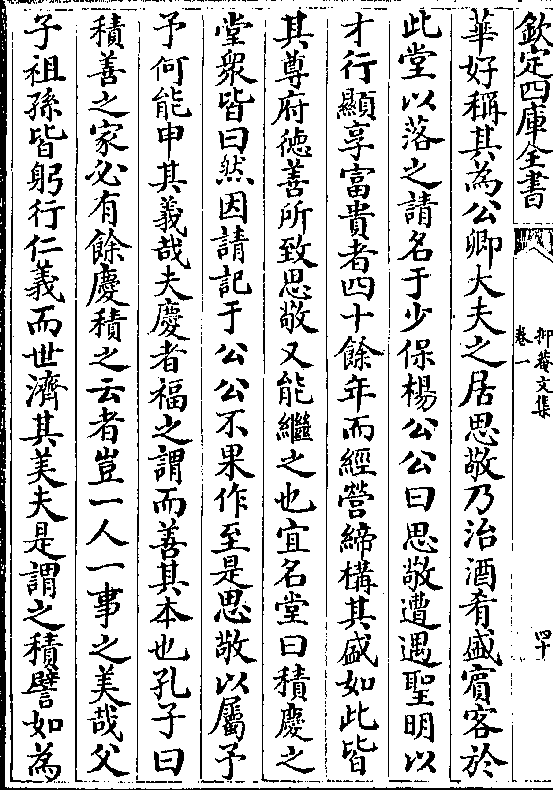 欽定四庫全書
抑菴文集
卷一
四十
華好稱其為公卿大夫之居思敬乃治酒肴盛賓客於
此堂以落之請名于少保楊公公曰思敬遭遇聖明以
才行顯享富貴者四十餘年而經營締構其盛如此皆
其尊府徳善所致思敬又能繼之也宜名堂曰積慶之
堂衆皆曰然因請記于公公不果作至是思敬以屬予
予何能申其義哉夫慶者福之謂而善其本也孔子曰
積善之家必有餘慶積之云者豈一人一事之美哉父
子祖孫皆躬行仁義而世濟其美夫是謂之積譬如為